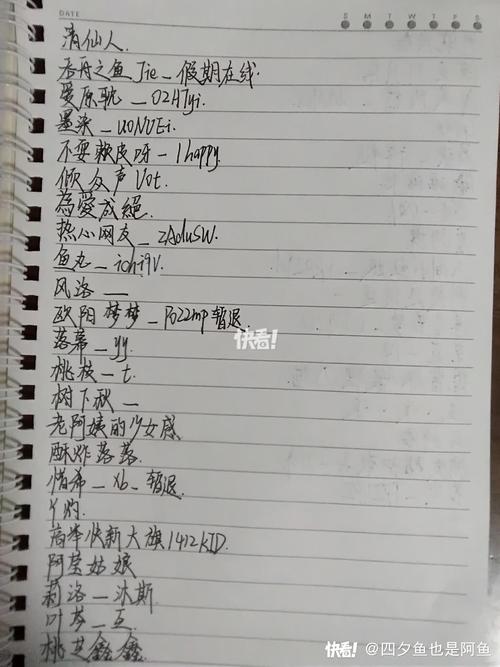 DATE
S M T W T F S
清仙人.
吞舟之鱼 Jie_假期在线.
爱原耽_02HTyi.
墨染_UONUEi.
不要赖皮呀_1happy.
倾众声Vot.
為愛成絕.
热心网友_zAduSW.
鱼丸_iohi9V.
风洛_
欧阳梦梦_Pozzmp暂退.
落幕_yy.
桃枝_t.
树下秋_
老阿姨的少女感
酥炸落落.
惜希_Xb_暂退.
丫灼.
快新大旗1412KID.
阿莹姑娘
莉洛_沐斯.
叶梦_五.
桃芝鑫鑫.
快看!
快看! @四夕鱼也是阿鱼